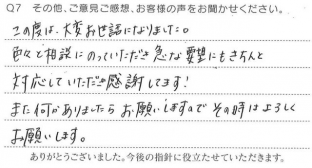 Q7 その他、ご意見ご感想、お客様の声をお聞かせください。
この度は、大変お世話になりました。
色々と相談にのっていただき急な要望にもきちんと
対応していただき感謝してます!
また何かありましたらお願いしますので その時はよろしく
お願いします。
ありがとうございました。今後の指針に役立たせていただきます。